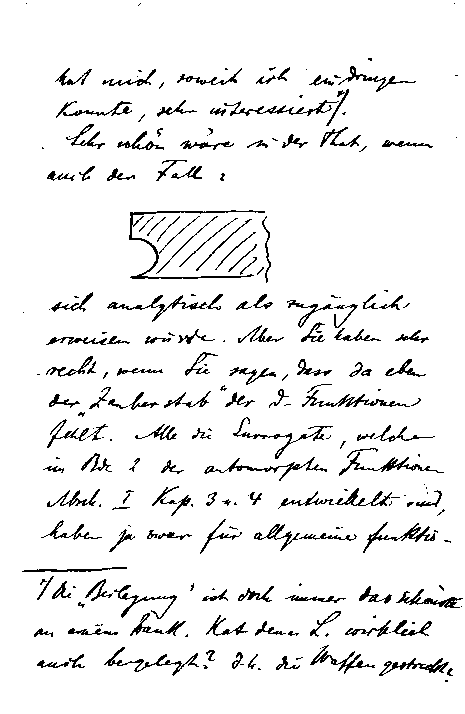 hat mich, soweit ich eindringen
konnte, sehr interessiert *).
Sehr schön wäre in der That, wenn
auch der Fall:
sich analytisch als zugänglich
erweisen würde. Aber Sie haben sehr
recht, wenn Sie sagen, dass da eben
der „Zauberstab“ der ϑ-Funktionen
fehlt. Alle die Surrogate, welche
im Bde 2 der automorphen Funktionen
Absch. I Kap. 3 u. 4 entwickelt sind,
haben ja zwar für allgemeine funktio-
*) Die „Beilegung“ ist doch immer das Schönste
an einem Zank. Hat denn L. wirklich
auch beigelegt? d.h. die Waffen gestreckt?